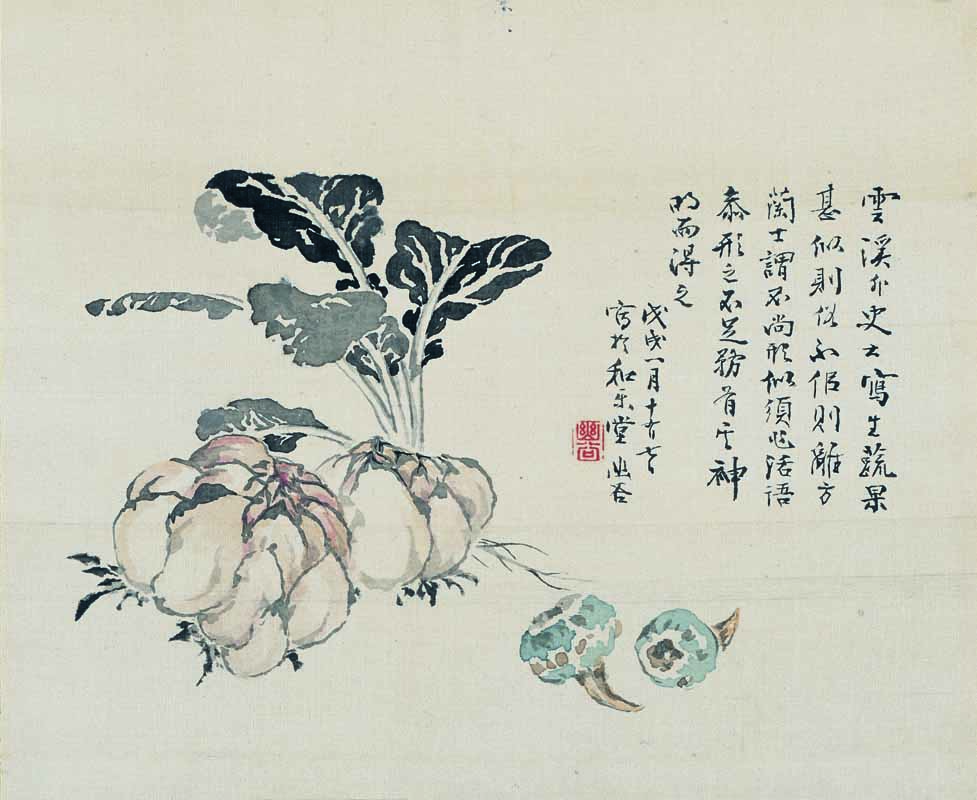 雲溪外史云寫生蔬果
甚似則俗不佀則離方
蘭士謂不尚形似須作活語
參形之不足務肖其神
而得之
戊戌一月十有
寫於和樂堂 幽谷
幽谷